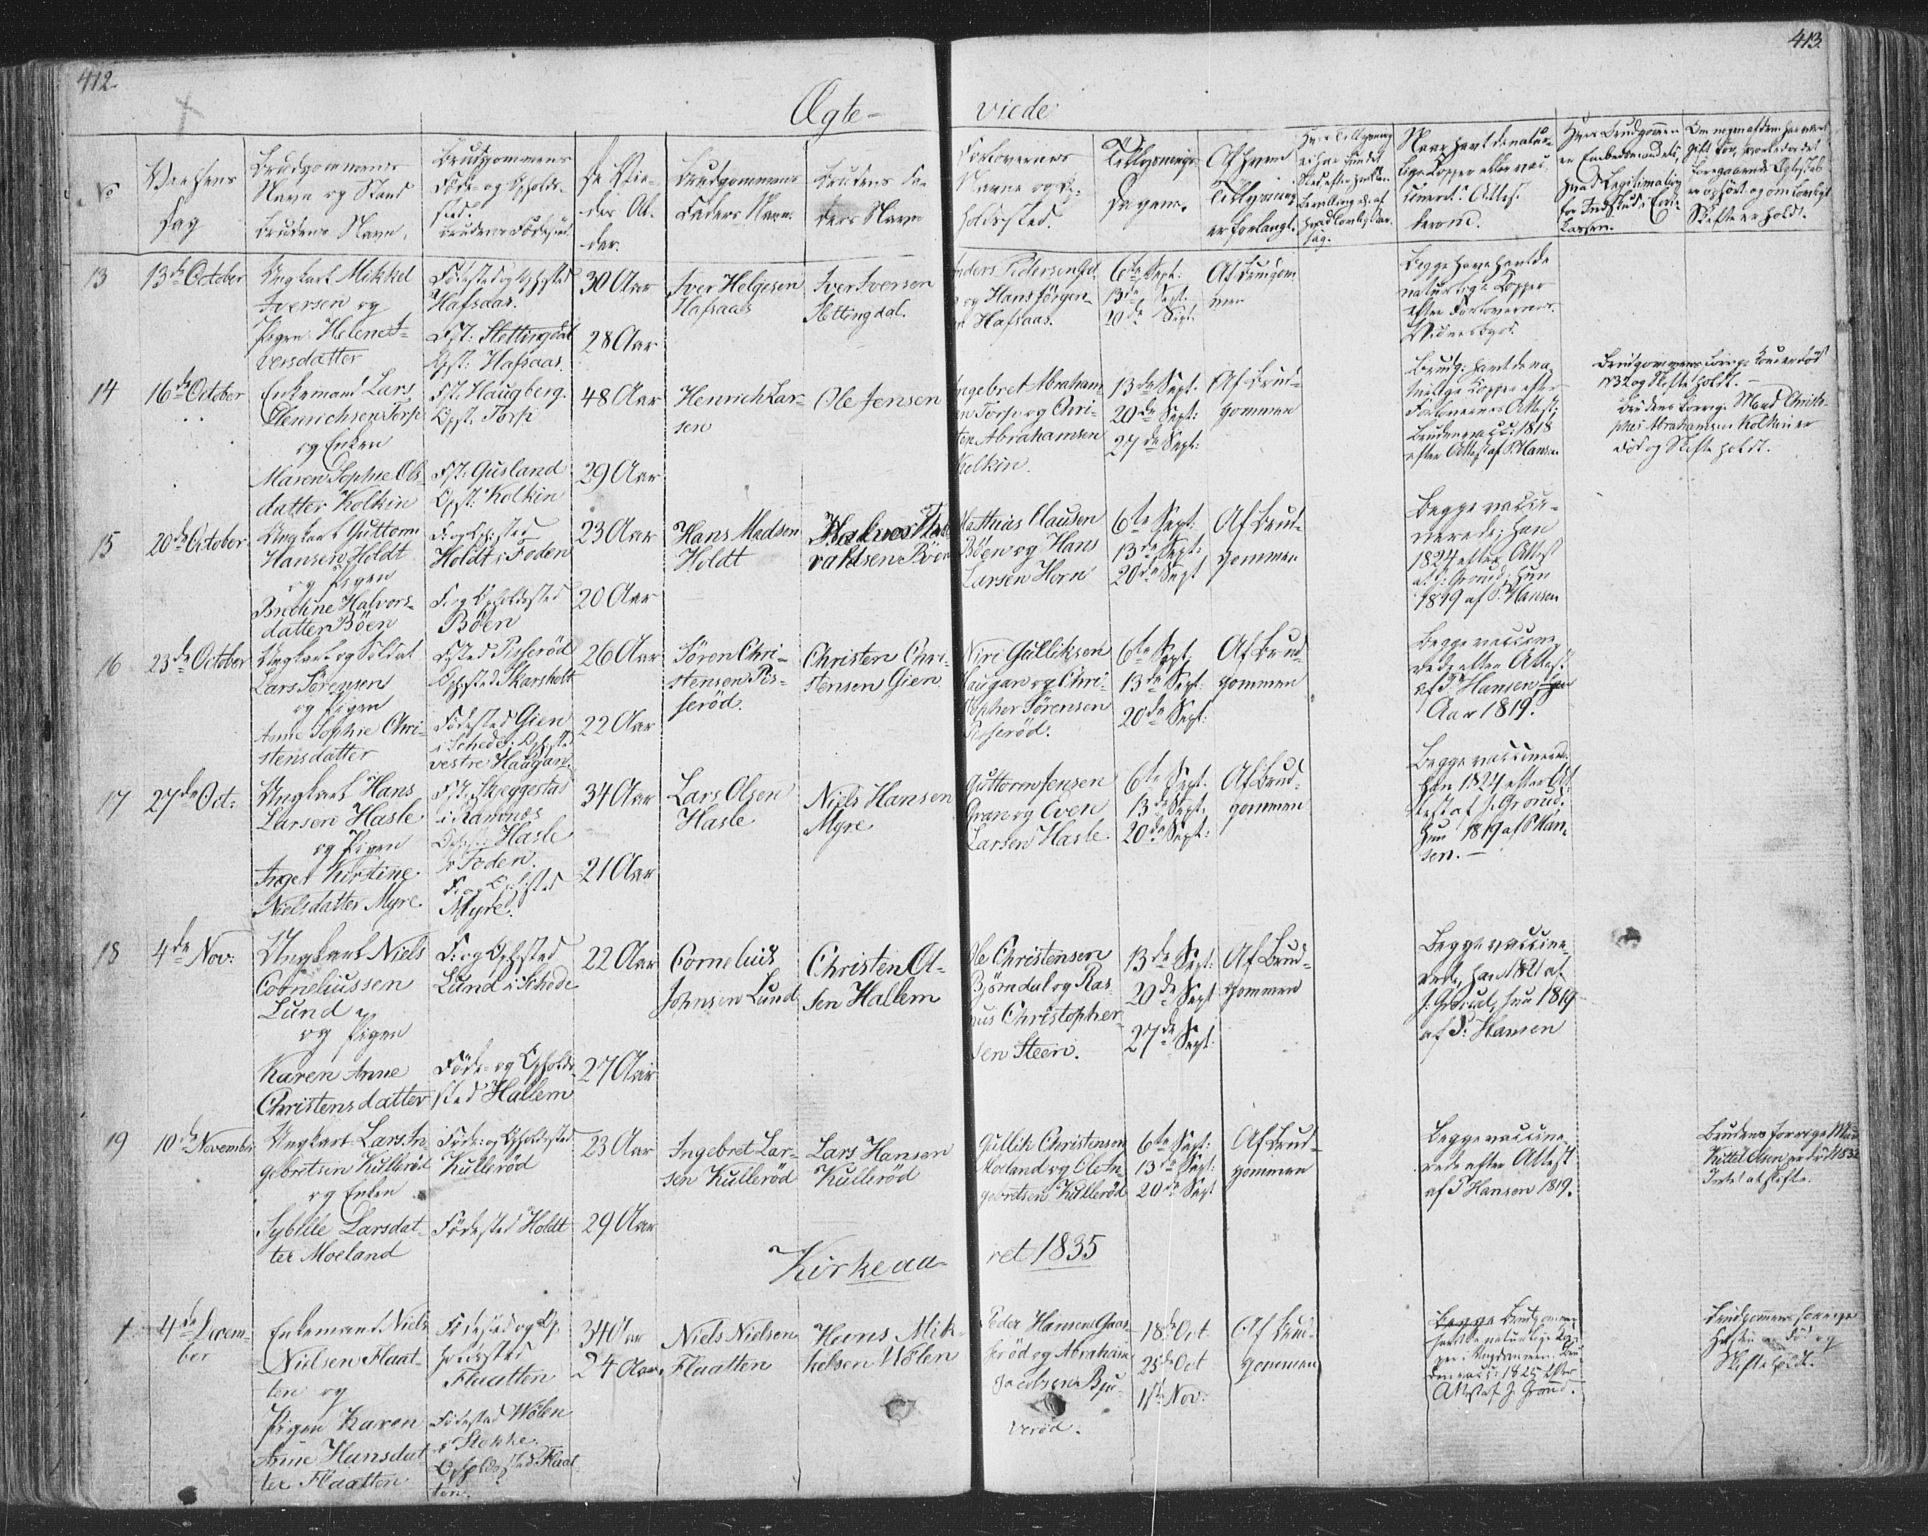 412
413
Ægte-viede
No
Vielsens Dag
Brudgommens Navn og Stand
Brudens Navn.
Brudgommens Føde- og Opholdssted.
Brudens Fødested
De Viedes Alder.
Brudgommens Faders Navn.
Brudens Faders Navn
Forlovernes Navne og Opholdssted.
Tillysnings Dagen.
Af hvem Tillysning er forlangt.
13
13de October
Ungkarl Mikkel
Iversen og
Pigen Helene I-
versdatter
Fødested og Ophsted
Hafsaas.
Fst: Slettingdal
Opst: Hafsaas
30 Aar
28 Aar
Iver Helgesen
Hafsaas
Iver Iversen
Slettingdal.
Anders Pedersen
og Hans Jörgen-
Hafsaas.
6te Sept:
13de Sept.
20de Sept.
Af Brudgom
men
Begge have havt de
naturlige Kopper
efter Forlovernes
Vidnesbyrd.
14
16de October
Enkemand Lars
Henrichsen Torp
og Enken
Maren Sophie Ols
datter Kolkin
Fst. Haugberg.
Opst. Torp
Fst: Gusland
Opst: Kolkin
48 Aar
29 Aar
Henrich Lar-
sen
Ole Jensen
Ingebret Abraham-
sen Torp og Chri-
sten Abrahamsen
Kolkin.
13de Sept.
20de Sept:
27de Sept:
Af Brud-
gommen
Brudg: havt de na
turlige Kopper efter
Forlovernes Attest:
Bruden vacc: 1818
efter Attest af P. Hansen
Brudgommens forrige Kone er død
1832 og Skifte holdt. -
Brudens forrige Mand Christo-
pher Abrahamsen Kolkin er
død og Skifte holdt.
15
20de October
Ungkarl Guttorm
Hansen Holdt
og Pigen
Bredine Halvors-
datter Böen
F. og Ophsted
Holdt i Foden
F. og Opholdssted
Böen
23 Aar
20 Aar
Hans Madsen
Holdt
Mathias Clausen
Böen og Hans
Larsen Horn
6te Sept:
13de Sept:
20de Sept
Af Brud-
gommen
Begge vacci-
nerede; han
1824 efter Attest
af J: Gronud; hun
1819 af P. Hansen
16
23de October
Ungkarl og Soldat
Lars Sörensen
og Pigen
Anne Sophie Chri-
stensdatter
Fsted Pisseröd
Ophsted Skarsholt
Födested Gien
i Schede: Ophst
vestre Haugan
26 Aar
22 Aar
Sören Chri-
stensen Pis-
seröd.
Christen Chri-
stensen Gien
Niri Gulliksen
Haugan og Chri-
stopher Sörensen
Pisseröd.
6te Sept.
13de Sept:
20de Sept:
Af Brud-
gommen
Begge vaccine
rede efter Attest
af P. Hansen
Aar 1819.
17
27de Oct:
Ungkarl Hans
Larsen Hasle
og Pigen
Inger Kirstine
Nielsdatter Myre
Fst. Skeggestad
i Ramnæs
Opst: Hasle
i Foden.
F. og Ophsted
Myre.
34 Aar
21 Aar
Lars Olsen
Hasle
Niels Hansen
Myre
Guttorm Jensen
Gran og Even
Larsen Hasle.
6te Sept.
13de Sept.
20de Sept:
Af Brud-
gommen
Begge vaccinerede
han 1824 efter At
test af J. Gronud.
hun 1819 af P Han-
sen. -
18
4de Nov:
Ungkarl Niels
Corneliussen
Lund
og Pigen
Karen Anne
Christensdatter
F. og Ophsted
Lund i Schede
Föde- og Opholds-
sted Hallem
22 Aar
27 Aar
Cornelius
Johnsen Lund
Christen Ol-
sen Hallem
Ole Christensen
Björndal og Ras-
mus Christopher-
sen Steen.
13de Sept:
20de Sept
27de Sept:
Af Brud-
gommen
Begge vaccine-
rede, han 1821 af
J. Gronud, hun 1819
af P: Hansen
19
10de November
Ungkarl Lars In-
gebretsen Kulleröd
og Enken
Sybille Larsdat-
ter Moeland
Föde: og Opholdssted
Kulleröd
Födested Holdt
23 Aar
29 Aar
Ingebret Lar-
sen Kulleröd
Lars Hansen
Kulleröd
Gullik Christensen
Moeland og Ole In
gebretsen Kulleröd
6te Sept:
13de Sept:
20de Sept
Af Brud-
gommen
Begge vaccine-
rede efter Attest
af P Hansen 1819.
Brudens forrige Man
Kittel Olsen er død 1832
Intet at skifte.
Kirkeaaret 1835
1
4de Decem-
ber
Enkemand Niels
Nielsen Flaat-
ten og
Pigen Karen
Anne Hansdat
ter Flaatten
Fødested og Op-
holdssted
Flaatten
Födested Wölen
i Stokke
Opholdssted Flaat-
ten.
34 Aar
24 Aar
Niels Nielsen
Flaatten
Hans Mik-
kelsen Wölen
Peder Hansen Gaas-
seröd og Abraham
Jacobsen Bju-
veröd.
18de Oct
25de Oct
1ste Nov:
Af Brud-
gommen
Begge Brudgommen
havt de naturlige Kop-
per i Ungdommen. Bru
den vacc: 1825 efter
Attest af J. Gronud.
Brudgommens forrige
Hustru er død og
Skifte holdt.